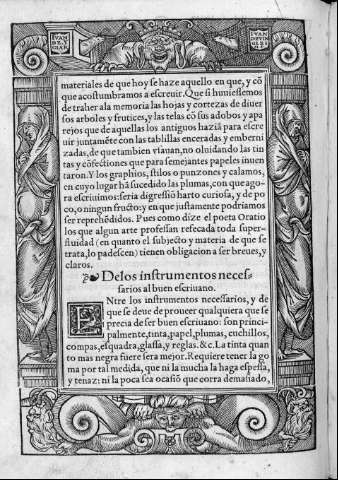 IVAN
DE YC
IAR
IVAN
DE VIN
GLES
materiales de que hoy se haze aquello en que, y cõ
que acostumbramos a escreuir. Que si huuiessemos
de traher a la memoria las hojas y cortezas de diuer
sos arboles y frutices, y las telas cõ sus adobos y apa
rejos que de aquellas los antiguos haziã para escre
uir juntamẽte con las tablillas enceradas y emberni
zadas, de que tambien vsauan, no oluidando las tin
tas y cõfectiones que para semejantes papeles inuen
taron. Y los graphios, stilos o punzones y calamos,
en cuyo lugar hã sucedido las plumas, con que ago-
ra escriuimos: seria digressiõ harto curiosa, y de po
co, o ningun fructo: y en que justamente podriamos
ser reprehẽdidos. Pues como dize el poeta Oratio
los que algun arte professan resecada toda super-
fluidad (en quanto el subjecto y materia de que se
trata, lo padescen) tienen obligacion a ser breues, y
claros.
❧ Delos instrumentos neces-
sarios al buen escriuano.
ENtre los instrumentos necessarios, y de
que se deue de proueer qualquiera que se
precia de ser buen escriuano: son princi-
palmente, tinta, papel, plumas, cuchillos,
compas, esquadra, glassa, y reglas. &c. La tinta quan
to mas negra fuere sera mejor. Requiere tener la go
ma por tal medida, que ni la mucha la haga espessa,
y tenaz: ni la poca sea ocasiõ que corra demasiado,